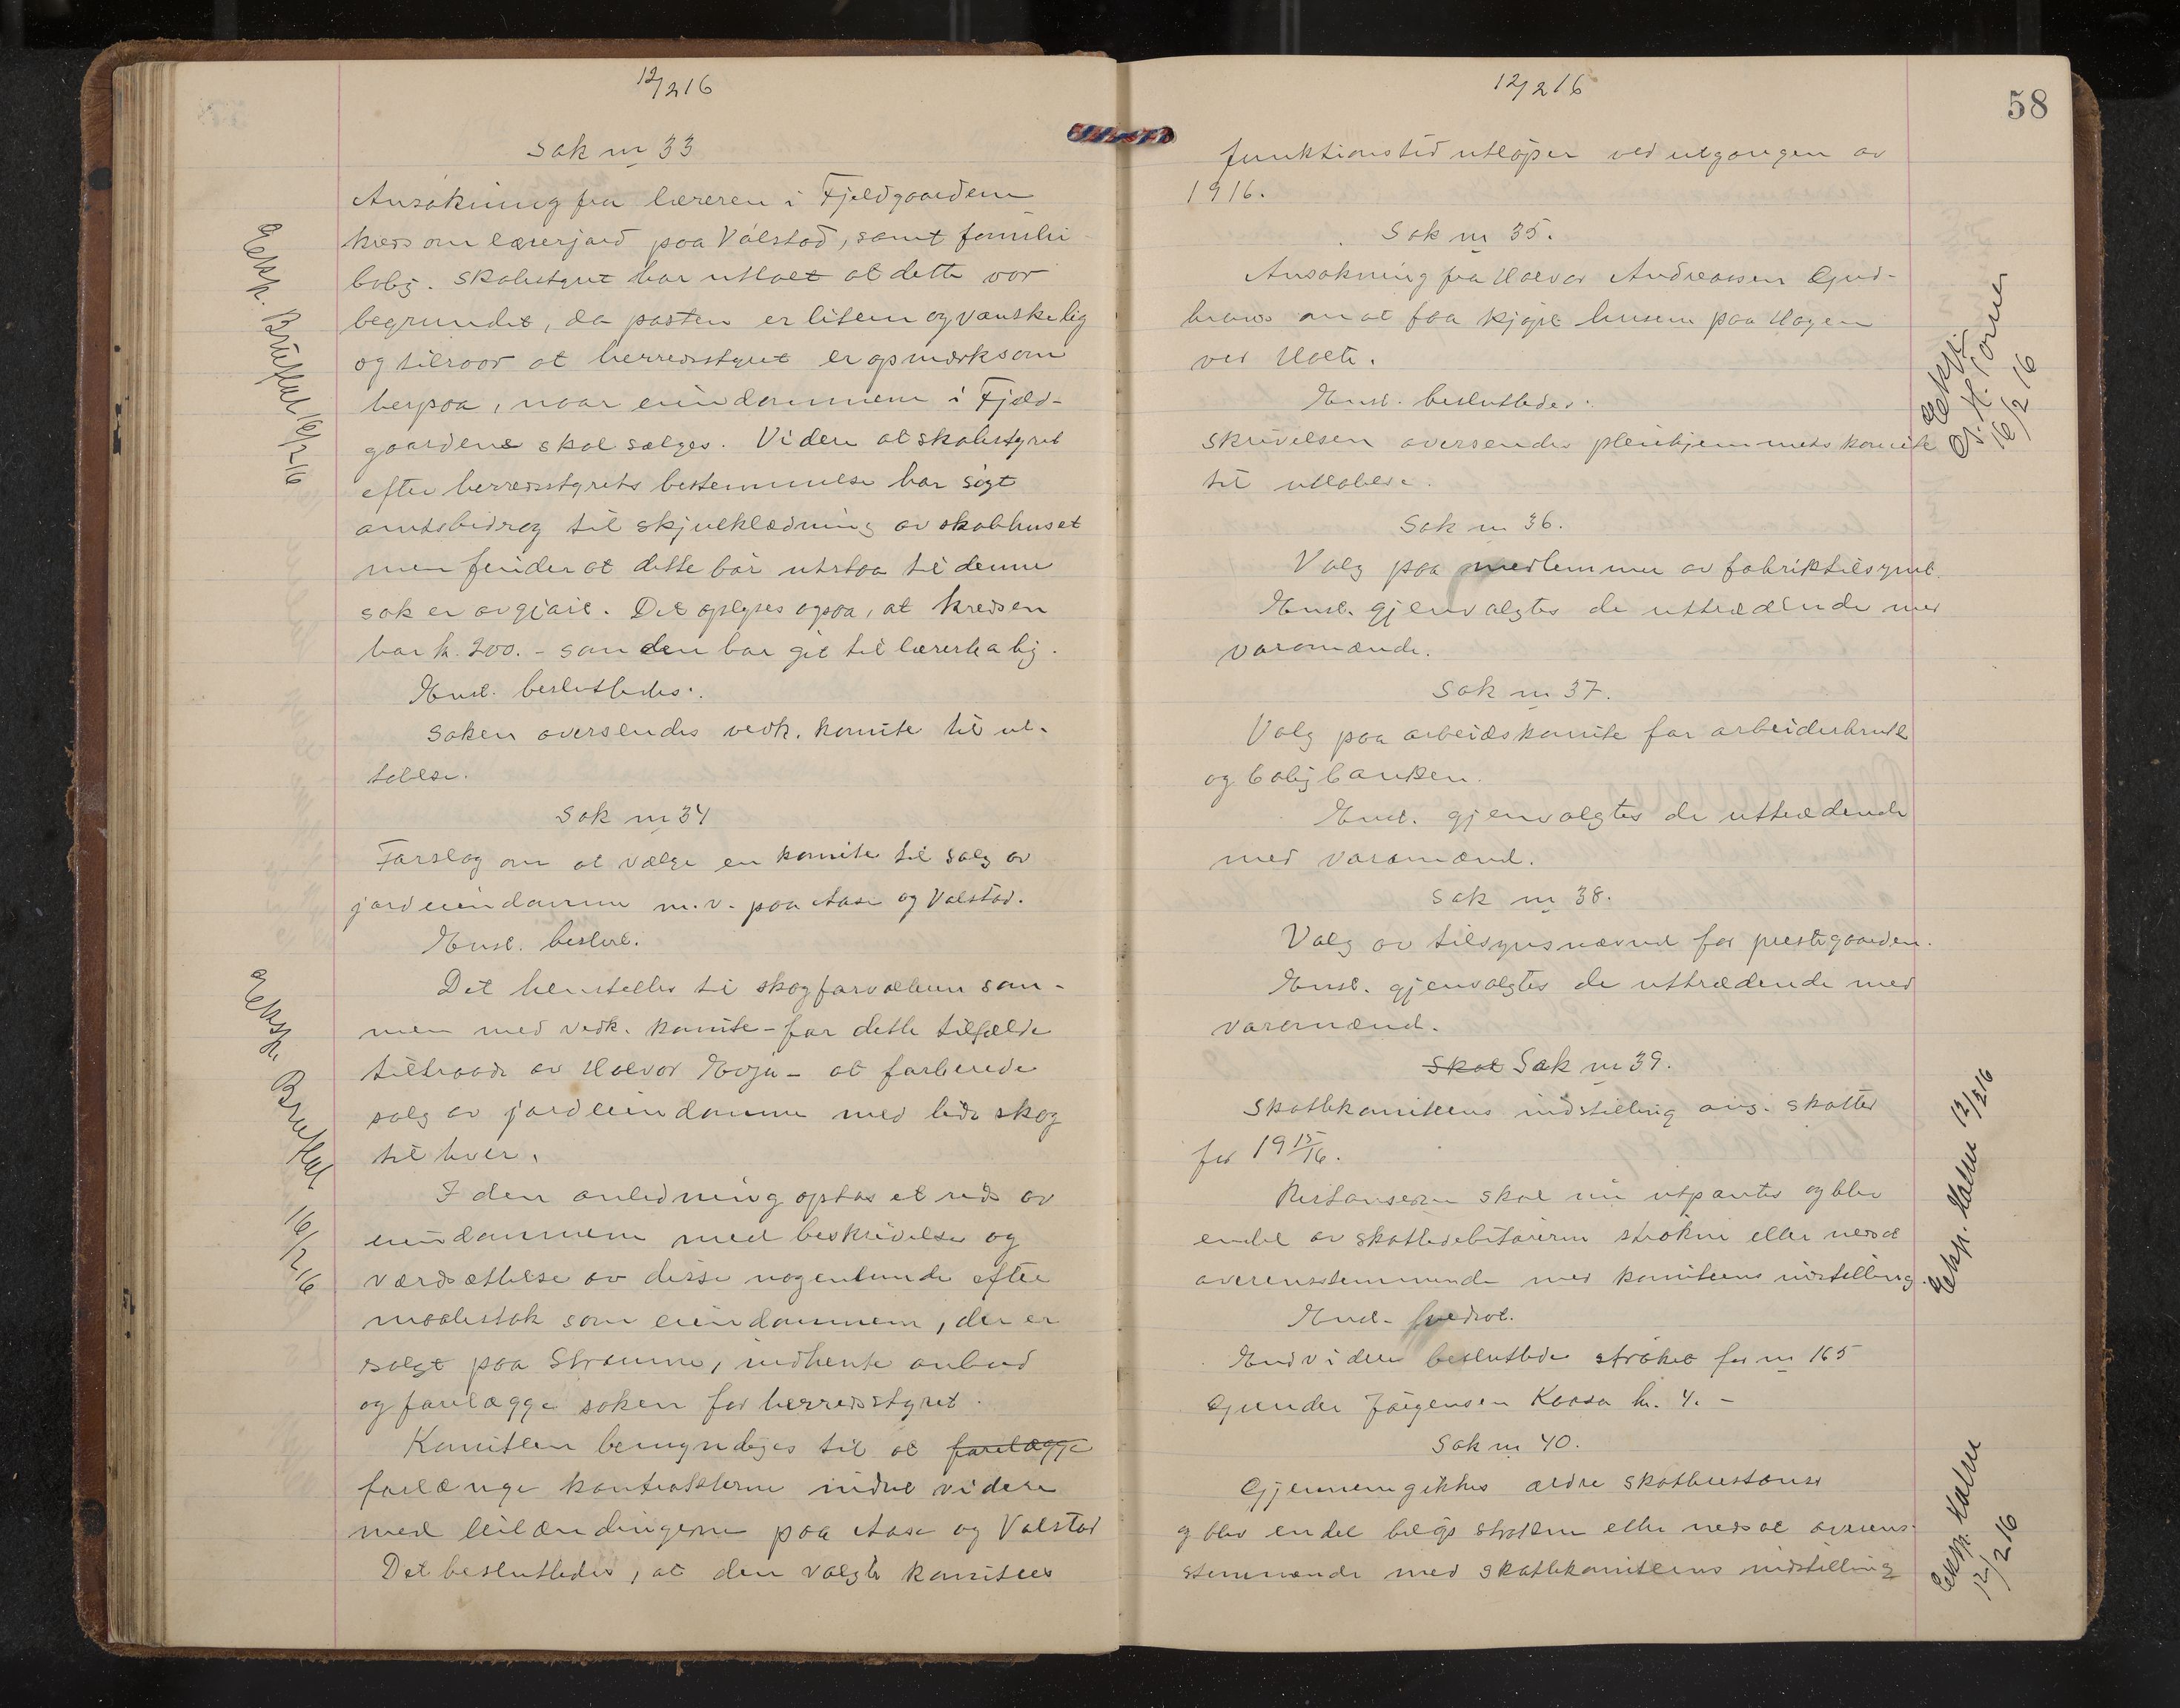 12/2 16
Sak nr 33
Ansökning fra læreren i Fjeldgaardene
kreds om lærerjord paa Valstad, samt familie
bolig. Skolestyret har uttalt at dette var
begrundet, da posten er liten og vanskelig
og tilraar at herredsstyret er opmerksom
herpaa, naar eiendommene i Fjeld-
gaardene skal sælges. Videre at skolestyret
efter herredsstyrets bestemmelse har søgt
amtsbidrag til skjulklædning av skolehuset
men finder at dette bør utstaa til denne
sak er avgjort. Det oplyses ogsaa, at kredsen
har k. 200.- som den har git til lærerbolig.
Enst. besluttedes:
Saken oversendes vedk. komite til ut-
talelse.
Eksp. Bruflat 16/2 16
Sak nr 34
Forslag om at vælge en komite til salg av
jordeiendomme m.v. paa Aase og Valstad.
Enst. beslut.
Det henstilles til skogforvalteren sam-
men med vedk. komite - for dette tilfælde
tiltraadt av Halvor Evju - at forberede
salg av jordeiendomme med litt skog
til hver.
I den anledning optas et rids av
eiendommene med beskrivelse og
værdsættelse av disse nogenlunde efter
maalestok som eiendommene, der er
solgt paa Strømme, indhente anbud
og forelægge saken for herredsstyret.
Komiteen bemyndiges til at forelægge
forlænge kontrakterne indtil videre
med leilændingerne paa Aase og Valstad
Det besluttedes, at den valgte komitees
Eksp. Bruflat 16/2 16
12/2 16
58
funktionstid utløper ved utgangen av
1916.
Sak nr 35.
Ansøkning fra Halvor Andreassen Gjud-
brands om at faa kjøpt husene paa Hagen
ved Holte.
Enst. besluttedes:
Skrivelsen oversendes pleiehjemmets komite
til uttalelse.
Eksp.
16/2 16
Sak nr 36.
Valg paa medlemmer av fabriktilsynet.
Enst. gjenvalgtes de uttrædende med
varamænd.
Sak nr 37.
Valg paa arbeidskomite for arbeiderbruk
og boligbanken.
Enst. gjenvalgtes de uttrædende
med varamænd.
Sak nr 38.
Valg av tilsynsnævnd for prestegaarden.
Enst. gjenvalgtes de uttrædende med
varamænd.
Skat Sak nr 39.
Skattekomiteens indstilling ang. skatter
for 1915/16.
Restanserne skal nu utpantes og blev
endel av skattedebitorerne strøkne eller nedsat
overensstemmende med komiteens indstilling.
Enst. vedtat.
Endvidere besluttedes strøket for nr 165
Gunder Jørgensen Kaasa kr. 4.-
Eksp. Holm 12/2 16
Sak nr 40.
Gjennemgikkes ældre skatterestanser
og blev endel beløp strøkne eller nedsat overens-
stemmende med skattekomiteens indstilling
Eksp. Holm
12/2 16